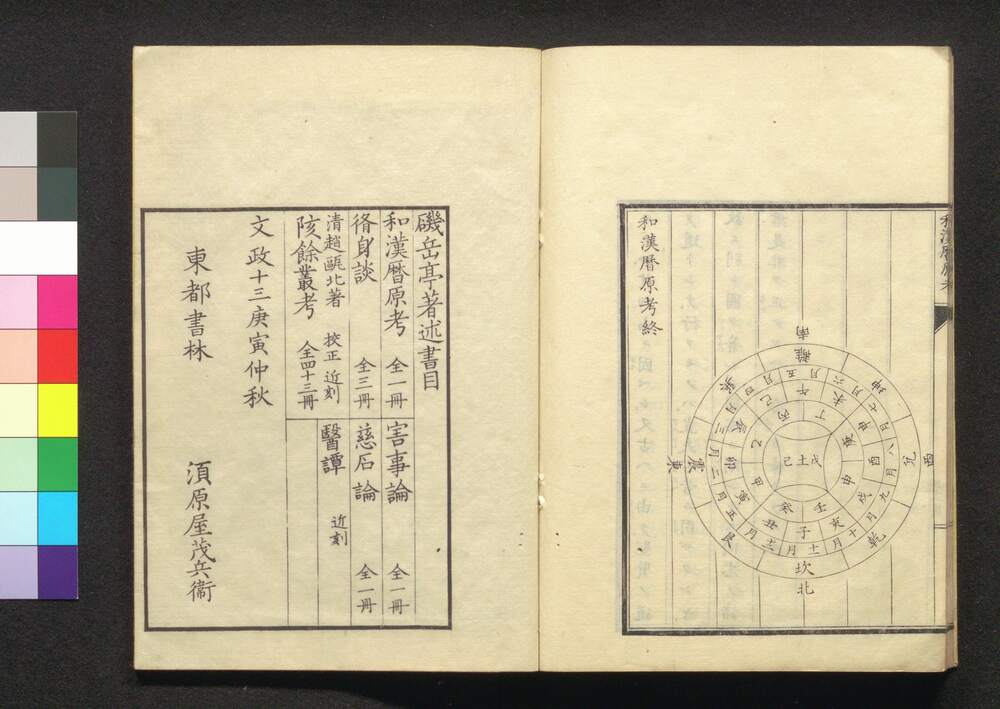 和漢暦原考
南
離
坤
西
兌
乾
坎
北
艮
震
東
巽
五月
六月
七月
八月
九月
十月
十一月
十二月
正月
二月
三月
四月
午
未
申
酉
戌
亥
子
丑
寅
卯
辰
巳
丙
丁
庚
辛
壬
癸
甲
乙
戊
土
己
和漢暦原考終
磯岳亭著述書目
和漢暦原考 全一冊
害事論 全一冊
脩身談 全三冊
慈石論 全一冊
清趙甌北著 校正 近刻
陔餘叢考 全四十三冊
醫譚 近刻
文政十三庚寅仲秋
東都書林 須原屋茂兵衞